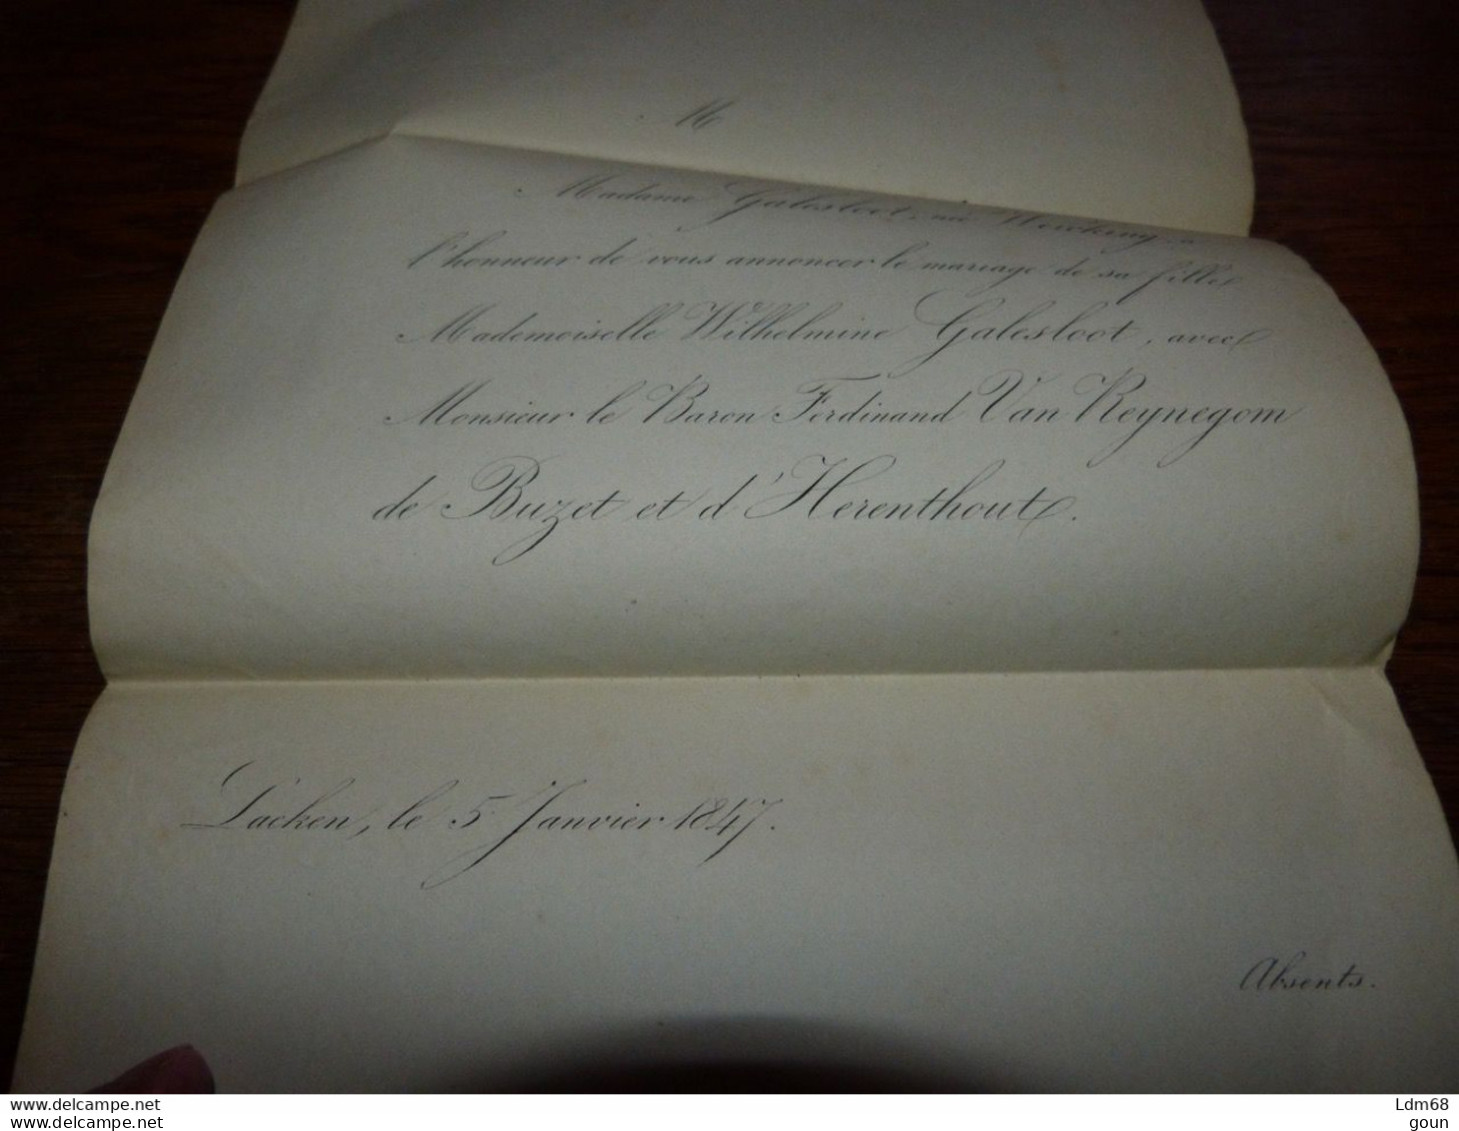 M
Madame Galesloot, née Wercking, a
l'honneur de vous annoncer le mariage de sa fille
Mademoiselle Wilhelmine Galesloot, avec
Monsieur le Baron Ferdinand Van Reynegom
de Buzet et d'Herenthout.
Lacken, le 5 Janvier 1847.
Absents.
www.delcampe.net
www.delcampe.net
Ldm68
goun